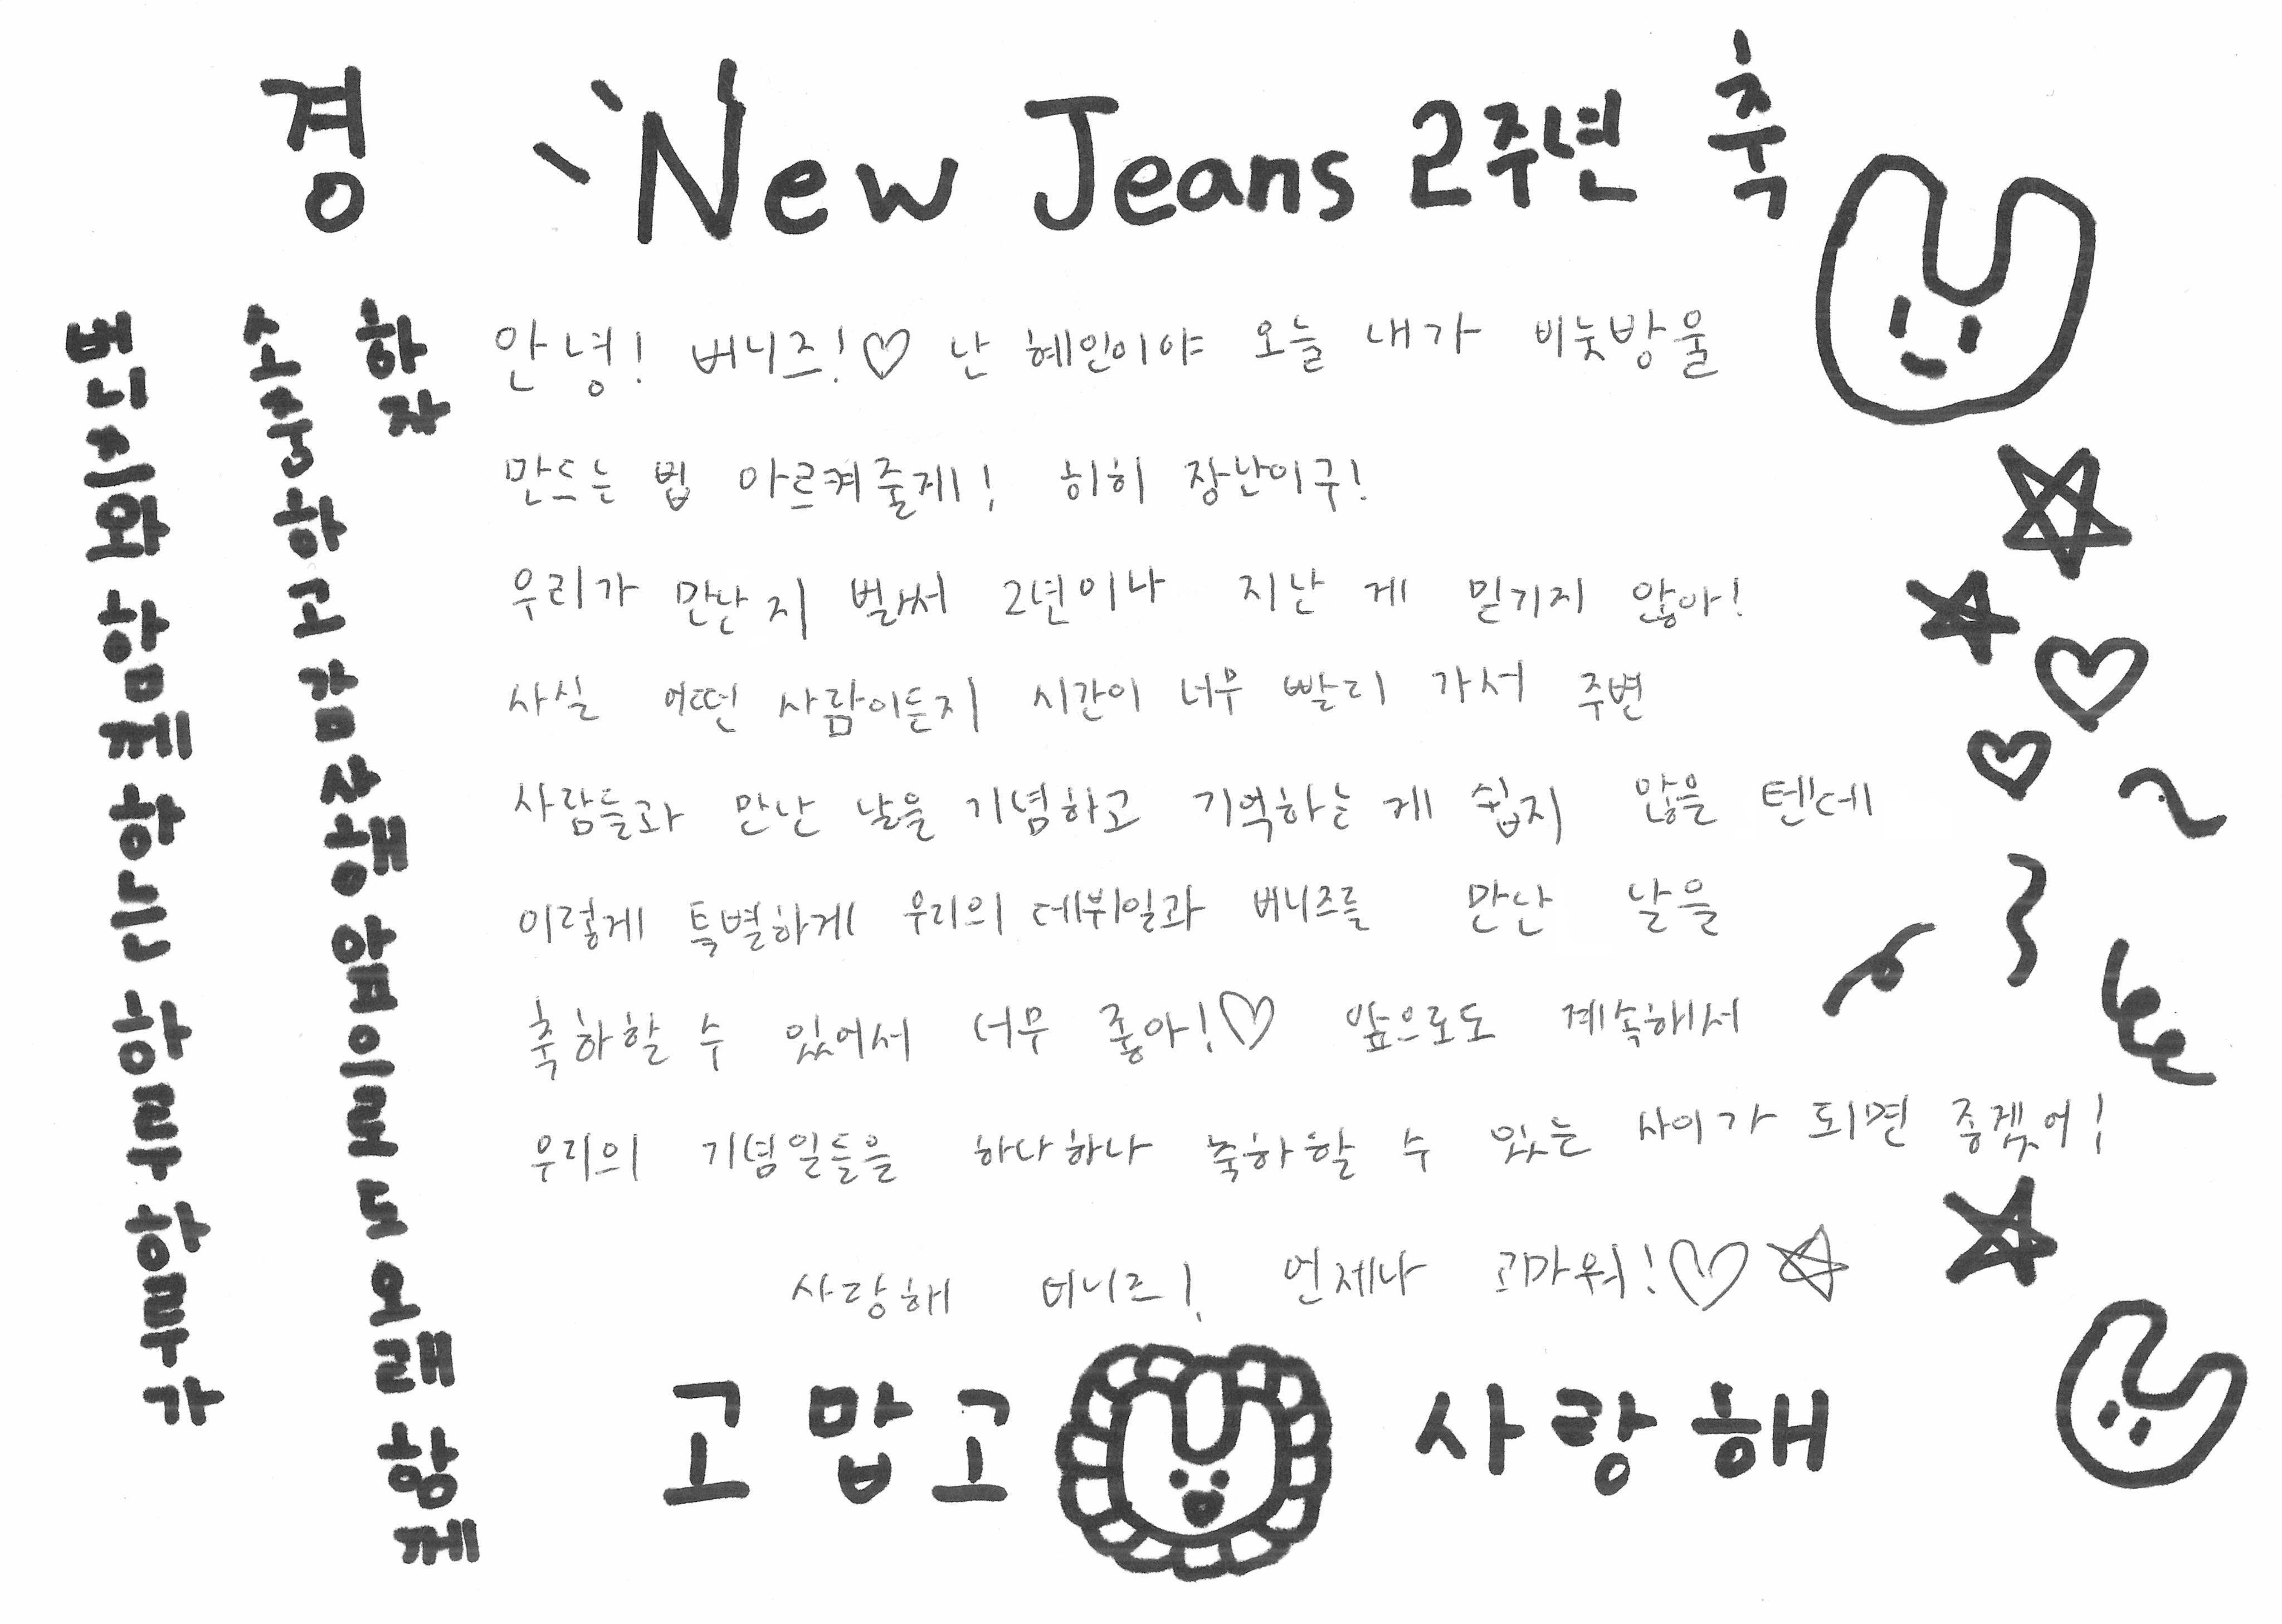 경 New Jeans 2주년 축
버니즈와 함께 하는 하루 하루가
소중하고 감사행 앞으로도 오래 함께
하자
안녕! 버니즈!♡ 난 혜인이야 오늘 내가 비눗방울
만드는 법 아르켜줄게! 히히 장난이구!
우리가 만난지 벌써 2년이나 지난 게 믿기지 않아!
사실 어떤 사람이든지 시간이 너무 빨리 가서 주변
사람들과 만난 날을 기념하고 기억하는 게 쉽지 않을 텐데
이렇게 특별하게 우리의 데뷔일과 버니즈를 만난 날을
축하할 수 있어서 너무 좋아!♡ 앞으로도 계속해서
우리의 기념일들을 하나하나 축하할 수 있는 사이가 되면 좋겠어!
사랑해 버니즈! 언제나 고마워!♡☆
고맙고 사랑해